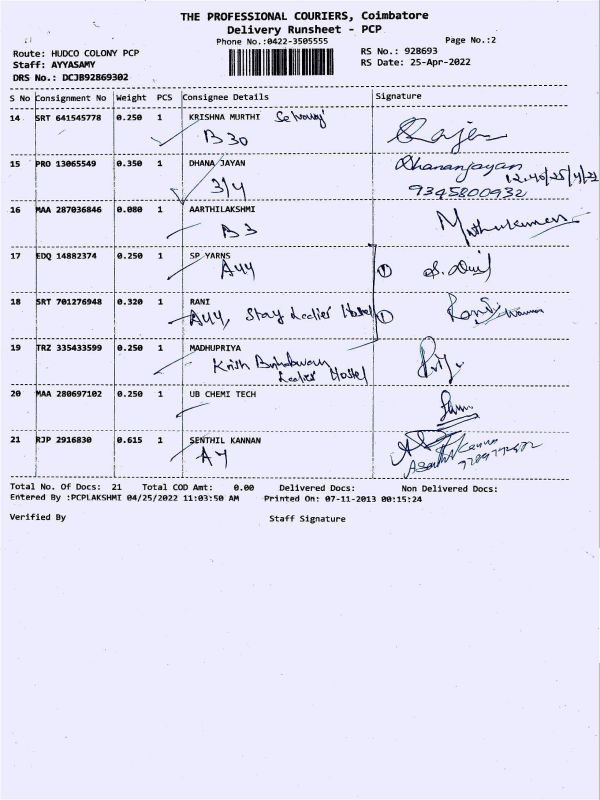 THE PROFESSIONAL COURIERS, Coimbatore
Delivery Runsheet - PCP
Phone No.:0422-3505555 Page No.:2
Route: HUDCO COLONY PCP RS No.: 928693
Staff: AYYASAMY RS Date: 25-Apr-2022
DRS No.: DCJB92869302
S No Consignment No Weight PCS Consignee Details Signature
14 SRT 641545778 0.250 1 KRISHNA MURTHI
B 30
15 PRO 13065549 0.350 1 DHANA JAYAN Dhananjayan
3/4 12.40/25/4/22
9345800932
16 MAA 287036846 0.080 1 AARTHILAKSHMI Muthukumar
B 3
17 EDQ 14882374 0.250 1 SP YARNS
A44 1
18 SRT 701276948 0.320 1 RANI
A44, Stay Ladies Hostel 1 Rani
19 TRZ 335433599 0.250 1 MADHUPRIYA
Krish Ladies Hostel
20 MAA 280697102 0.250 1 UB CHEMI TECH
21 RJP 2916830 0.615 1 SENTHIL KANNAN
A 4
Total No. Of Docs: 21 Total COD Amt: 0.00 Delivered Docs: Non Delivered Docs:
Entered By :PCPLAKSHMI 04/25/2022 11:03:50 AM Printed On: 07-11-2013 00:15:24
Verified By Staff Signature